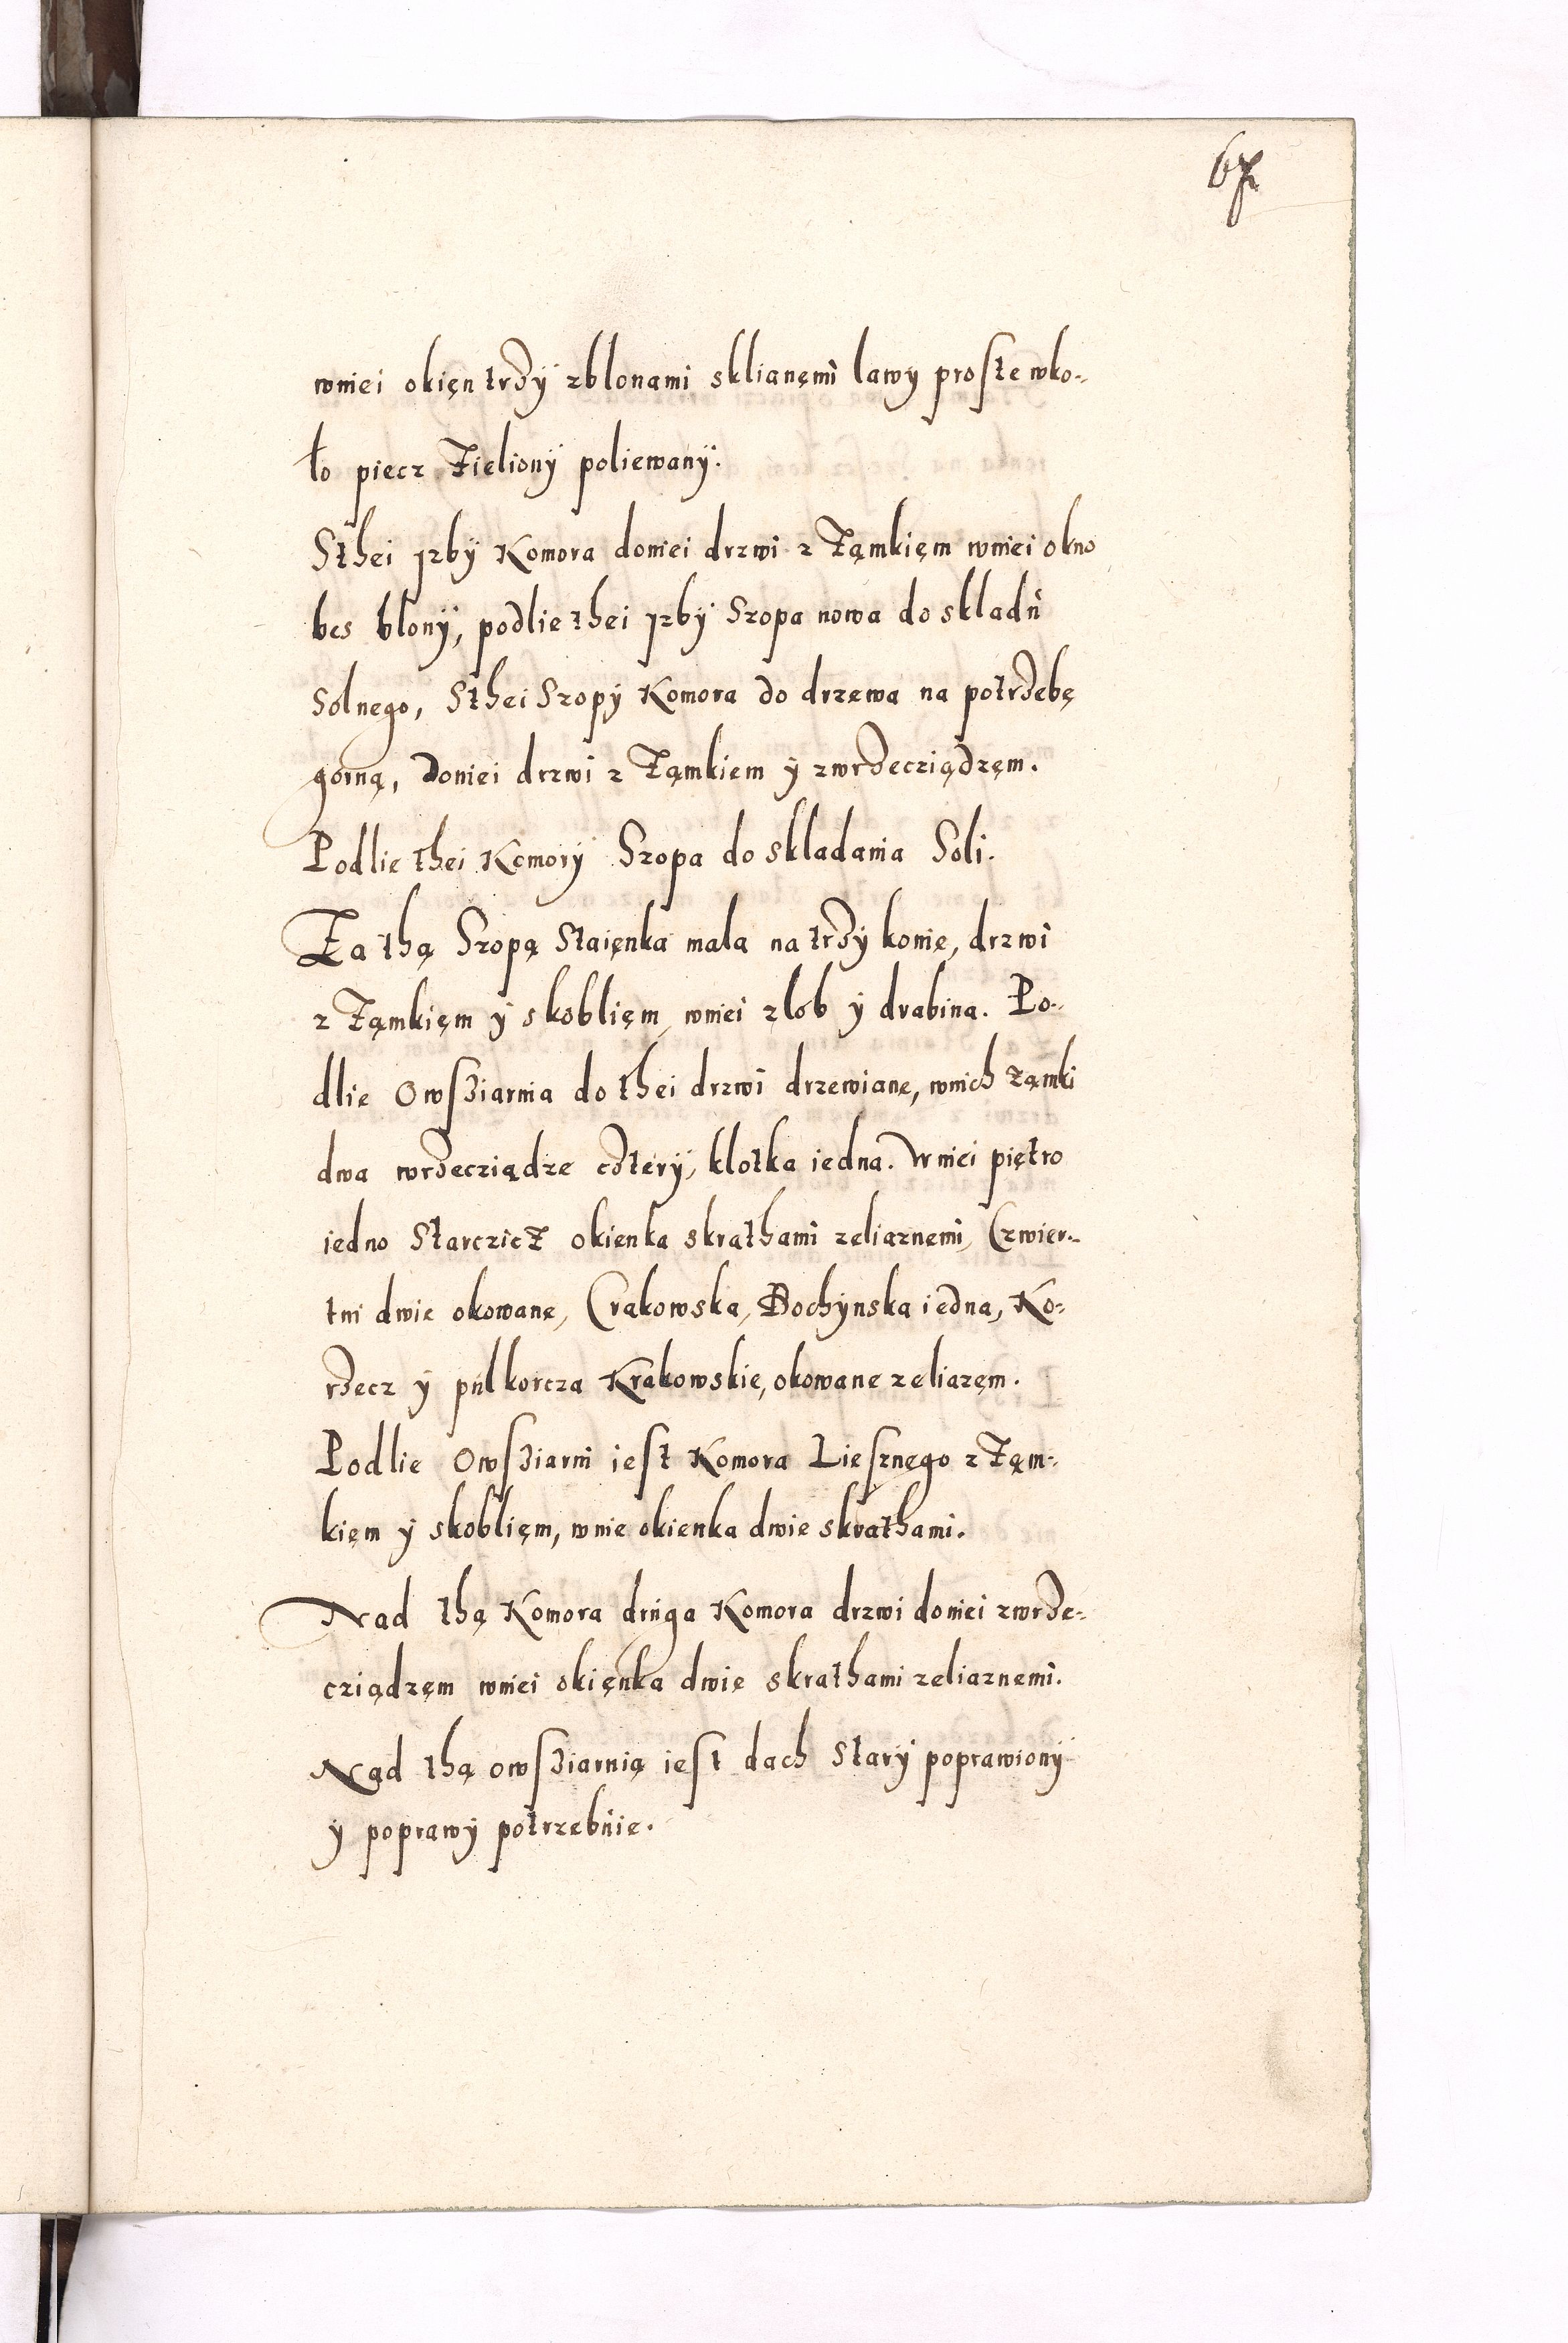 67
wniei okięn trzÿ zblonami sklianęmi lawy proste wko-
ło piecz Zielionÿ poliewanÿ.
Sthei yzbÿ Komora doniei drzwi z Zamkięm wniei okno
bes blonÿ, podlie thei yzbÿ Szopa nowa do składu
Solnego, Sthei Szopÿ Komora do drzewa na potrzebę
górną, doniei drzwi z Zamkiem ÿ zwrzecziądzęm.
Podlie thei Komorÿ Szopa do składania Soli.
Za thą Szopą Staięnka mała na trzÿ konię, drzwi
z Zamkięm ÿ skoblięm, wniei zlób ÿ drabina. Po-
dlie Owsziarnia do thei drzwi drzewianę, wnich zamki
dwa wrzecziądze cztery, klotka iedna. Wniei piętro
iedno Starczicz okienka skrathami zeliaznemi, Czwier-
tni dwie okowanę, Crakowska, Bochÿnska iedna, Ko-
rzecz ÿ pulkorcza Krakowskie, okowane zeliazęm.
Podlie Owsziarni iest Komora Liesznęgo z Zam-
kięm ÿ skoblięm, wnie okienka dwie skrathami.
Nad thą Komora druga Komora drzwi doniei zwrze-
cziądzęm wniei okięnka dwię skrathami zeliaznemi.
Nad thą owsziarnią iest dach Starÿ poprawionÿ
ÿ poprawÿ potrzebuie.